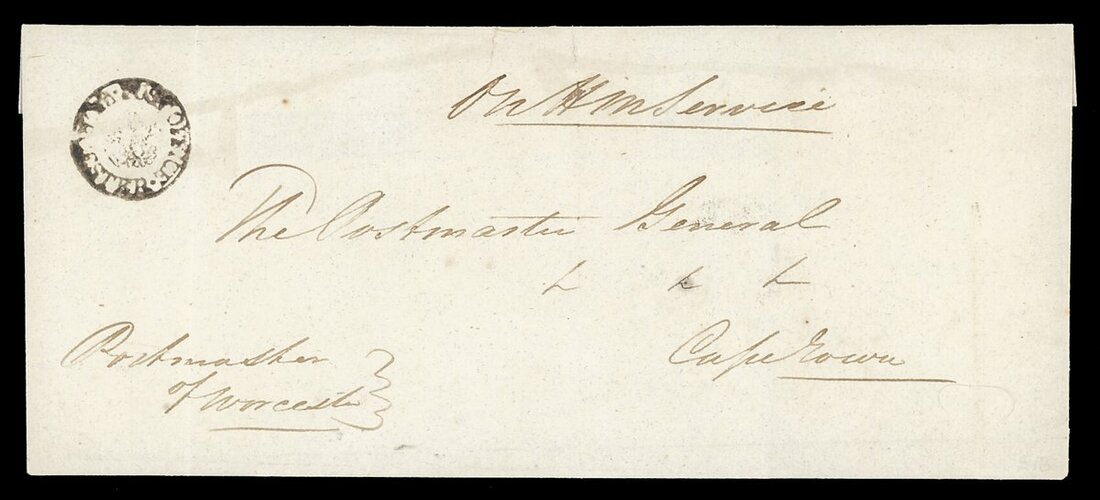 POST OFFICE WORCESTER
On H M Service
The Postmaster General
& & &
Cape Town
Postmaster
of Worcester